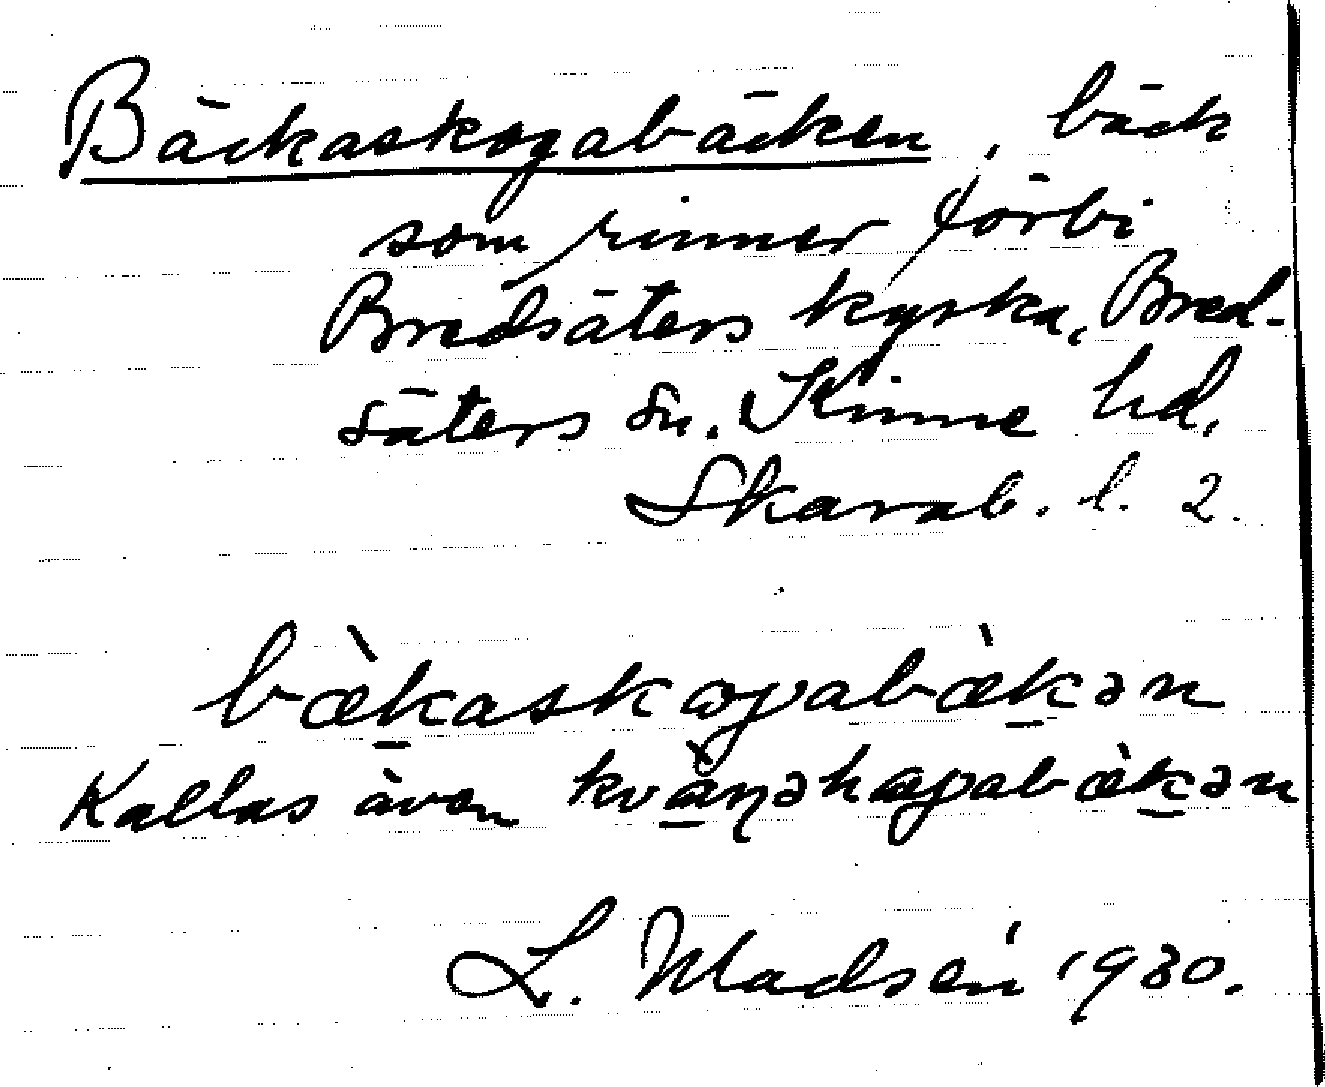 Bäckaskogabäcken, bäck
som rinner förbi
Bredsäters kyrka, Bred-
säters sn. Kinne hd.
Skarab. l. 2.
bæ̀kaskogabæ̀kən
Kallas även
L. Madsén 1930.